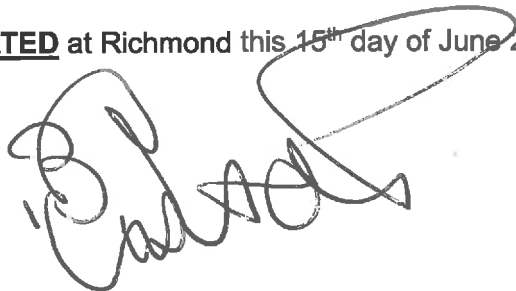 TED at Richmond this 15th day of June 2